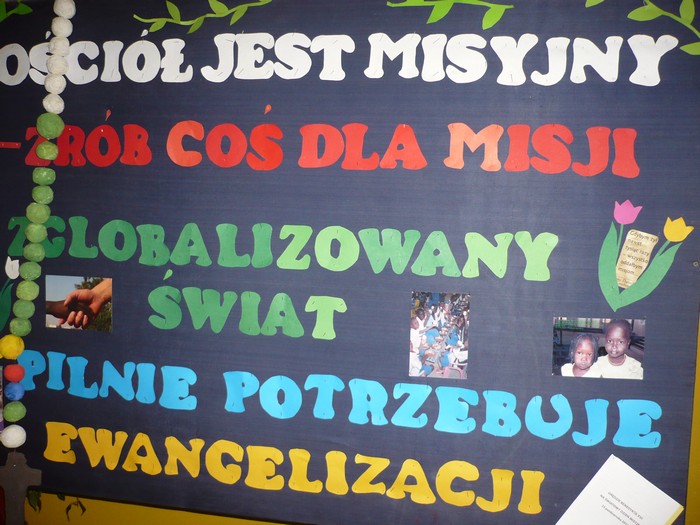 OŚCIÓŁ JEST MISYJNY
ZRÓB COŚ DLA MISJI
ZGLOBALIZOWANY
ŚWIAT
PILNIE POTRZEBUJE
EWANGELIZACJI